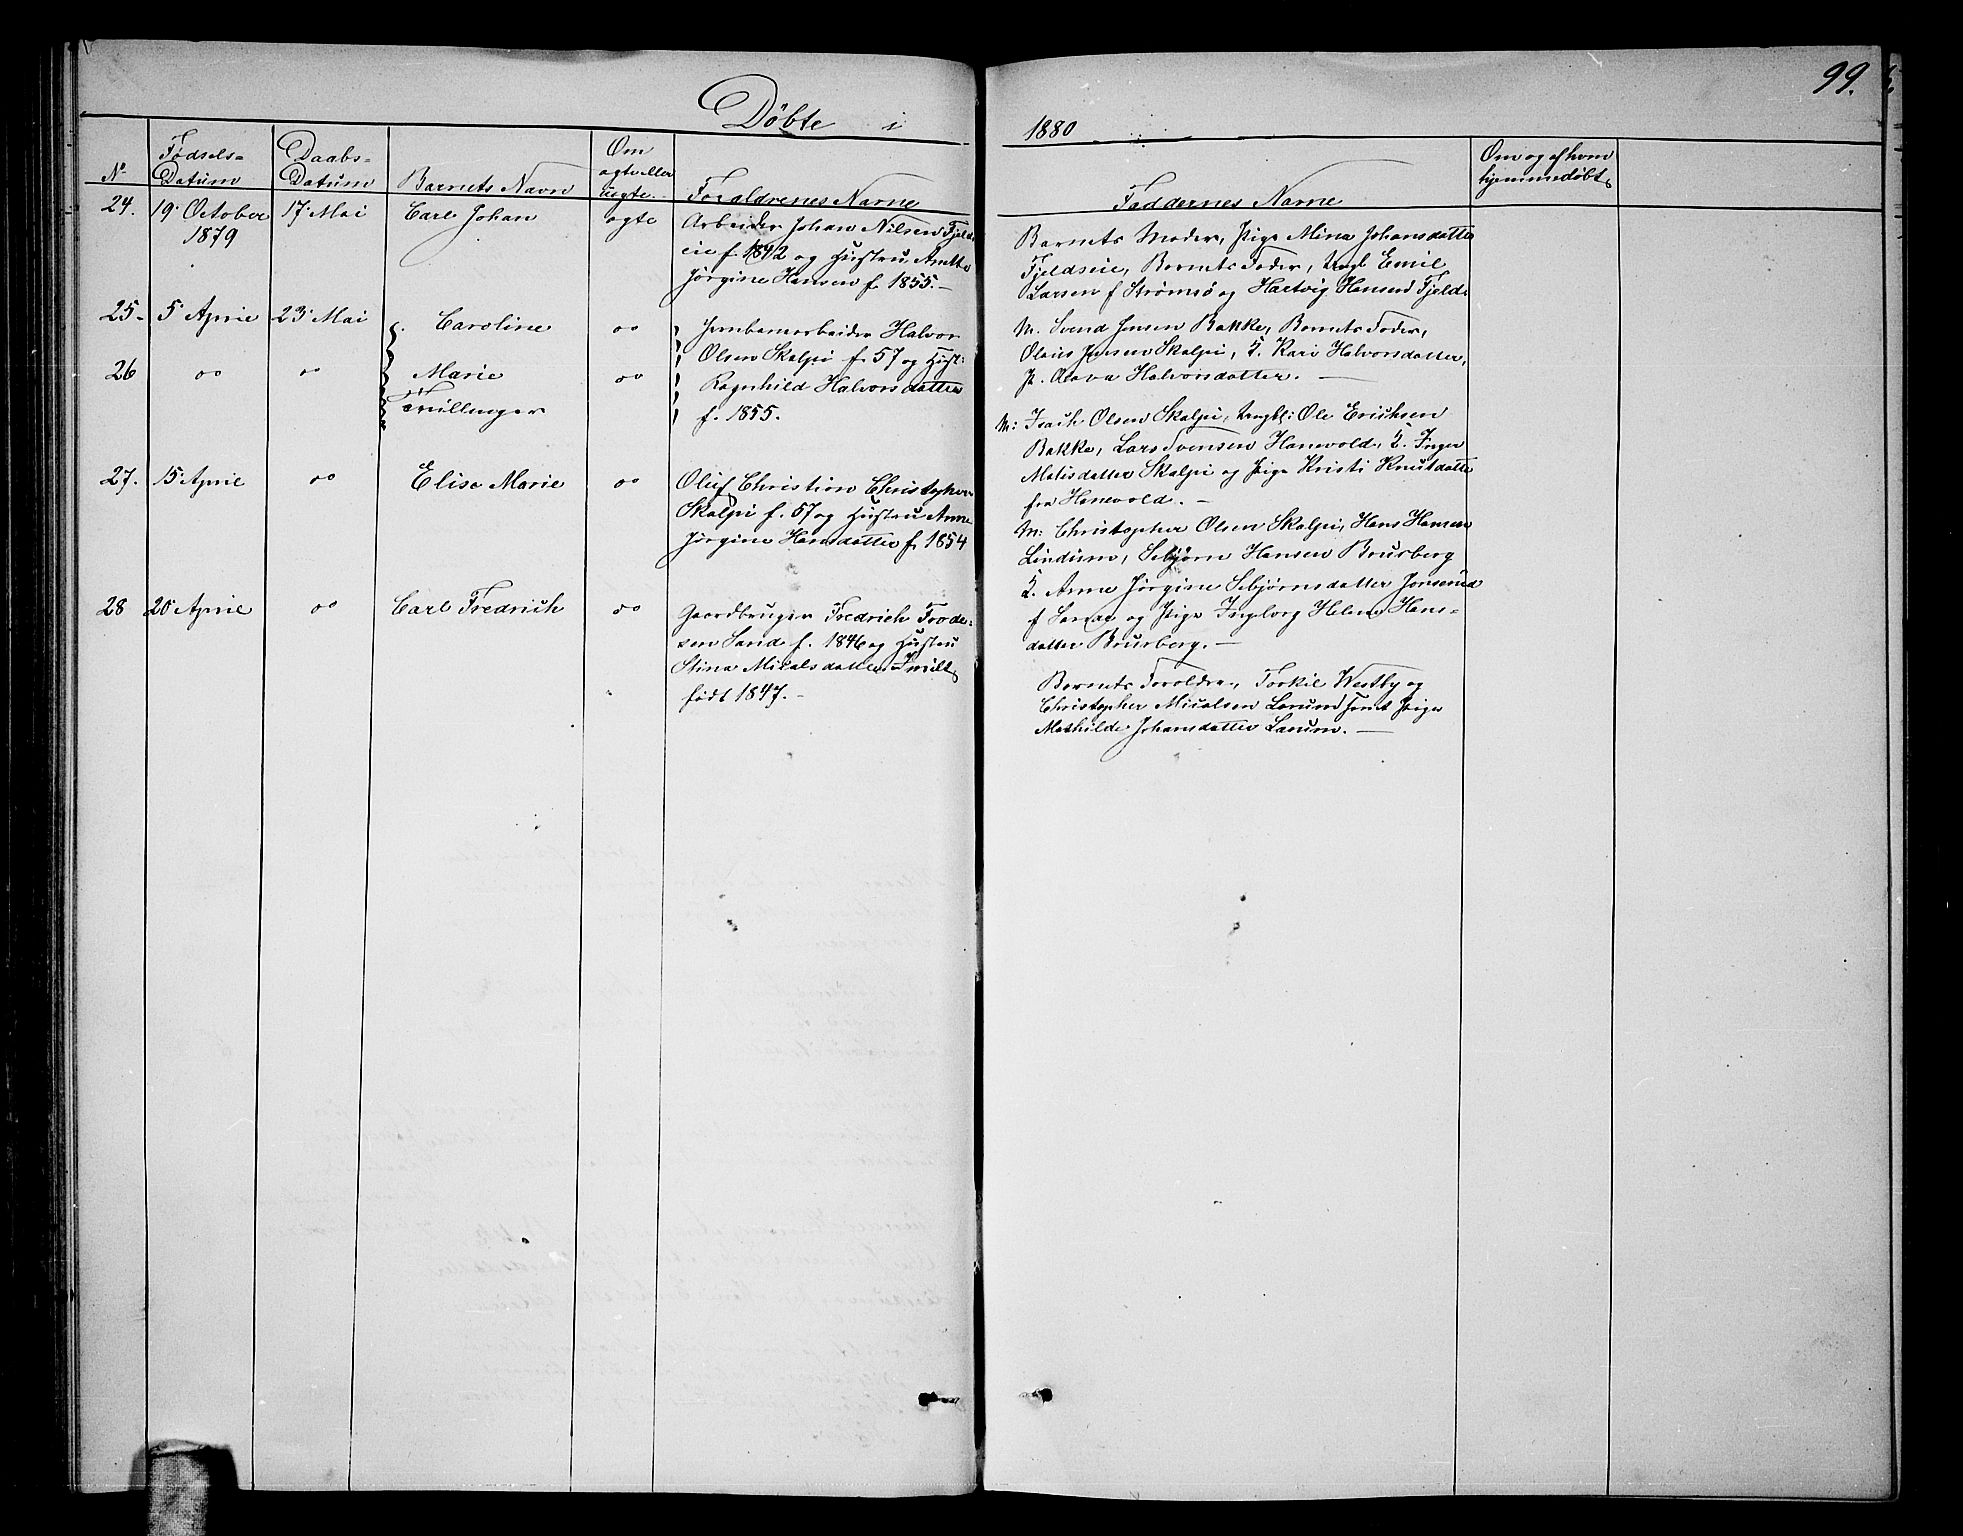 99.
Döbte i 1880
No
Fødsels-
Datum
Daabs-
Datum
Barnets Navn
Om
ægte eller
uægte
Forældrenes Navne
Faddernes Navne
Om og af hvem
hjemmedöbt
24. 19. October 17. Mai Carl Johan ægte Arbeider Johan Nilsen Fjeld-
1879
eie f. og Hustru
Jörgine Hansen f. 1855. —
Barnets Moder, Pige Mina Johansdatter
Fjeldseie, Barnets Fader, Ungk Emil
Larsen f Strömsö og Hartvig Hansen Fjelds
25- 5 April 23. Mai Caroline oo Jernbanearbeider Halvor
Olsen Skalpi f. 57 og Hust:
26 oo oo Marie oo
Ragnhild Halvorsdatter
Tvillinger
f. 1855.
M. Svend Jensen Bakke, Barnets Fader,
Olaus Jensen Skalpi, K. Kari Halvorsdatter,
P. Halvorsdatter. —
M: Isach Olsen Skalpi, Ungkl: Ole Erichsen
Bakke, Lars Svensen Hanevold, K. Inger
Matisdatter Skalpi og Pige Kristi Knutsdatter
fra Hanevold. —
27. 15 April oo Elise Marie oo Oluf Christian Christopher-
Skalpi f. 57 og Hustru Anne
Jörgine Hansdatter f. 1854
M: Christopher Olsen Skalpi, Hans Hansen
Lindum, Sebjörn Hansen Brusberg
K. Anne Jörgine Sebjörnsdatter
f Sande og Pige Ingeborg Helene Hans-
datter Brusberg. —
28 20 April oo Carl Fredrich oo Gaardbruger Fredrich Frode-
sen Sand f. 1846 og Hustru
Stina Micalsdatter
födt 1847. —
Barnets Forældre, Torkil Westby og
Christopher Micalsen Larum samt Pige
Mathilde Johansdatter Larum. —